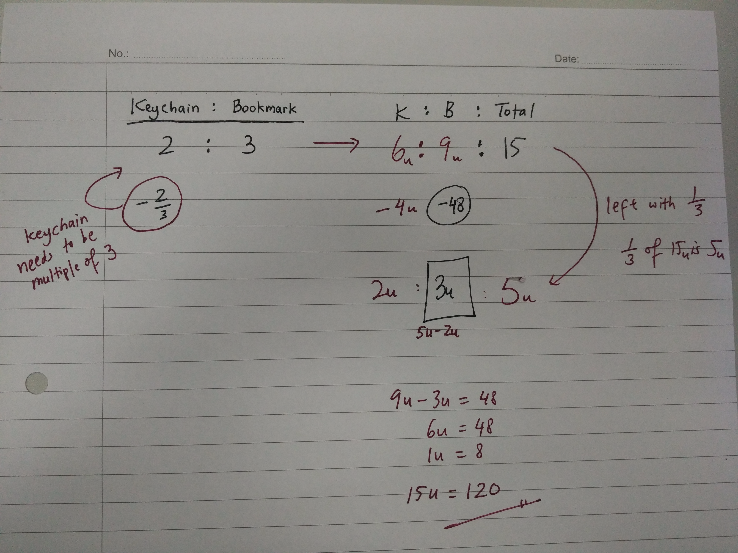 No.:
Date:
Keychain : Bookmark
K : B : Total
2 : 3 → 6u : 9u : 15
- 2/3
-4u -48
keychain
needs to be
multiple of 3
left with 1/3
1/3 of 15u is 5u
2u : 3u : 5u
5u-2u
9u - 3u = 48
6u = 48
1u = 8
15u = 120